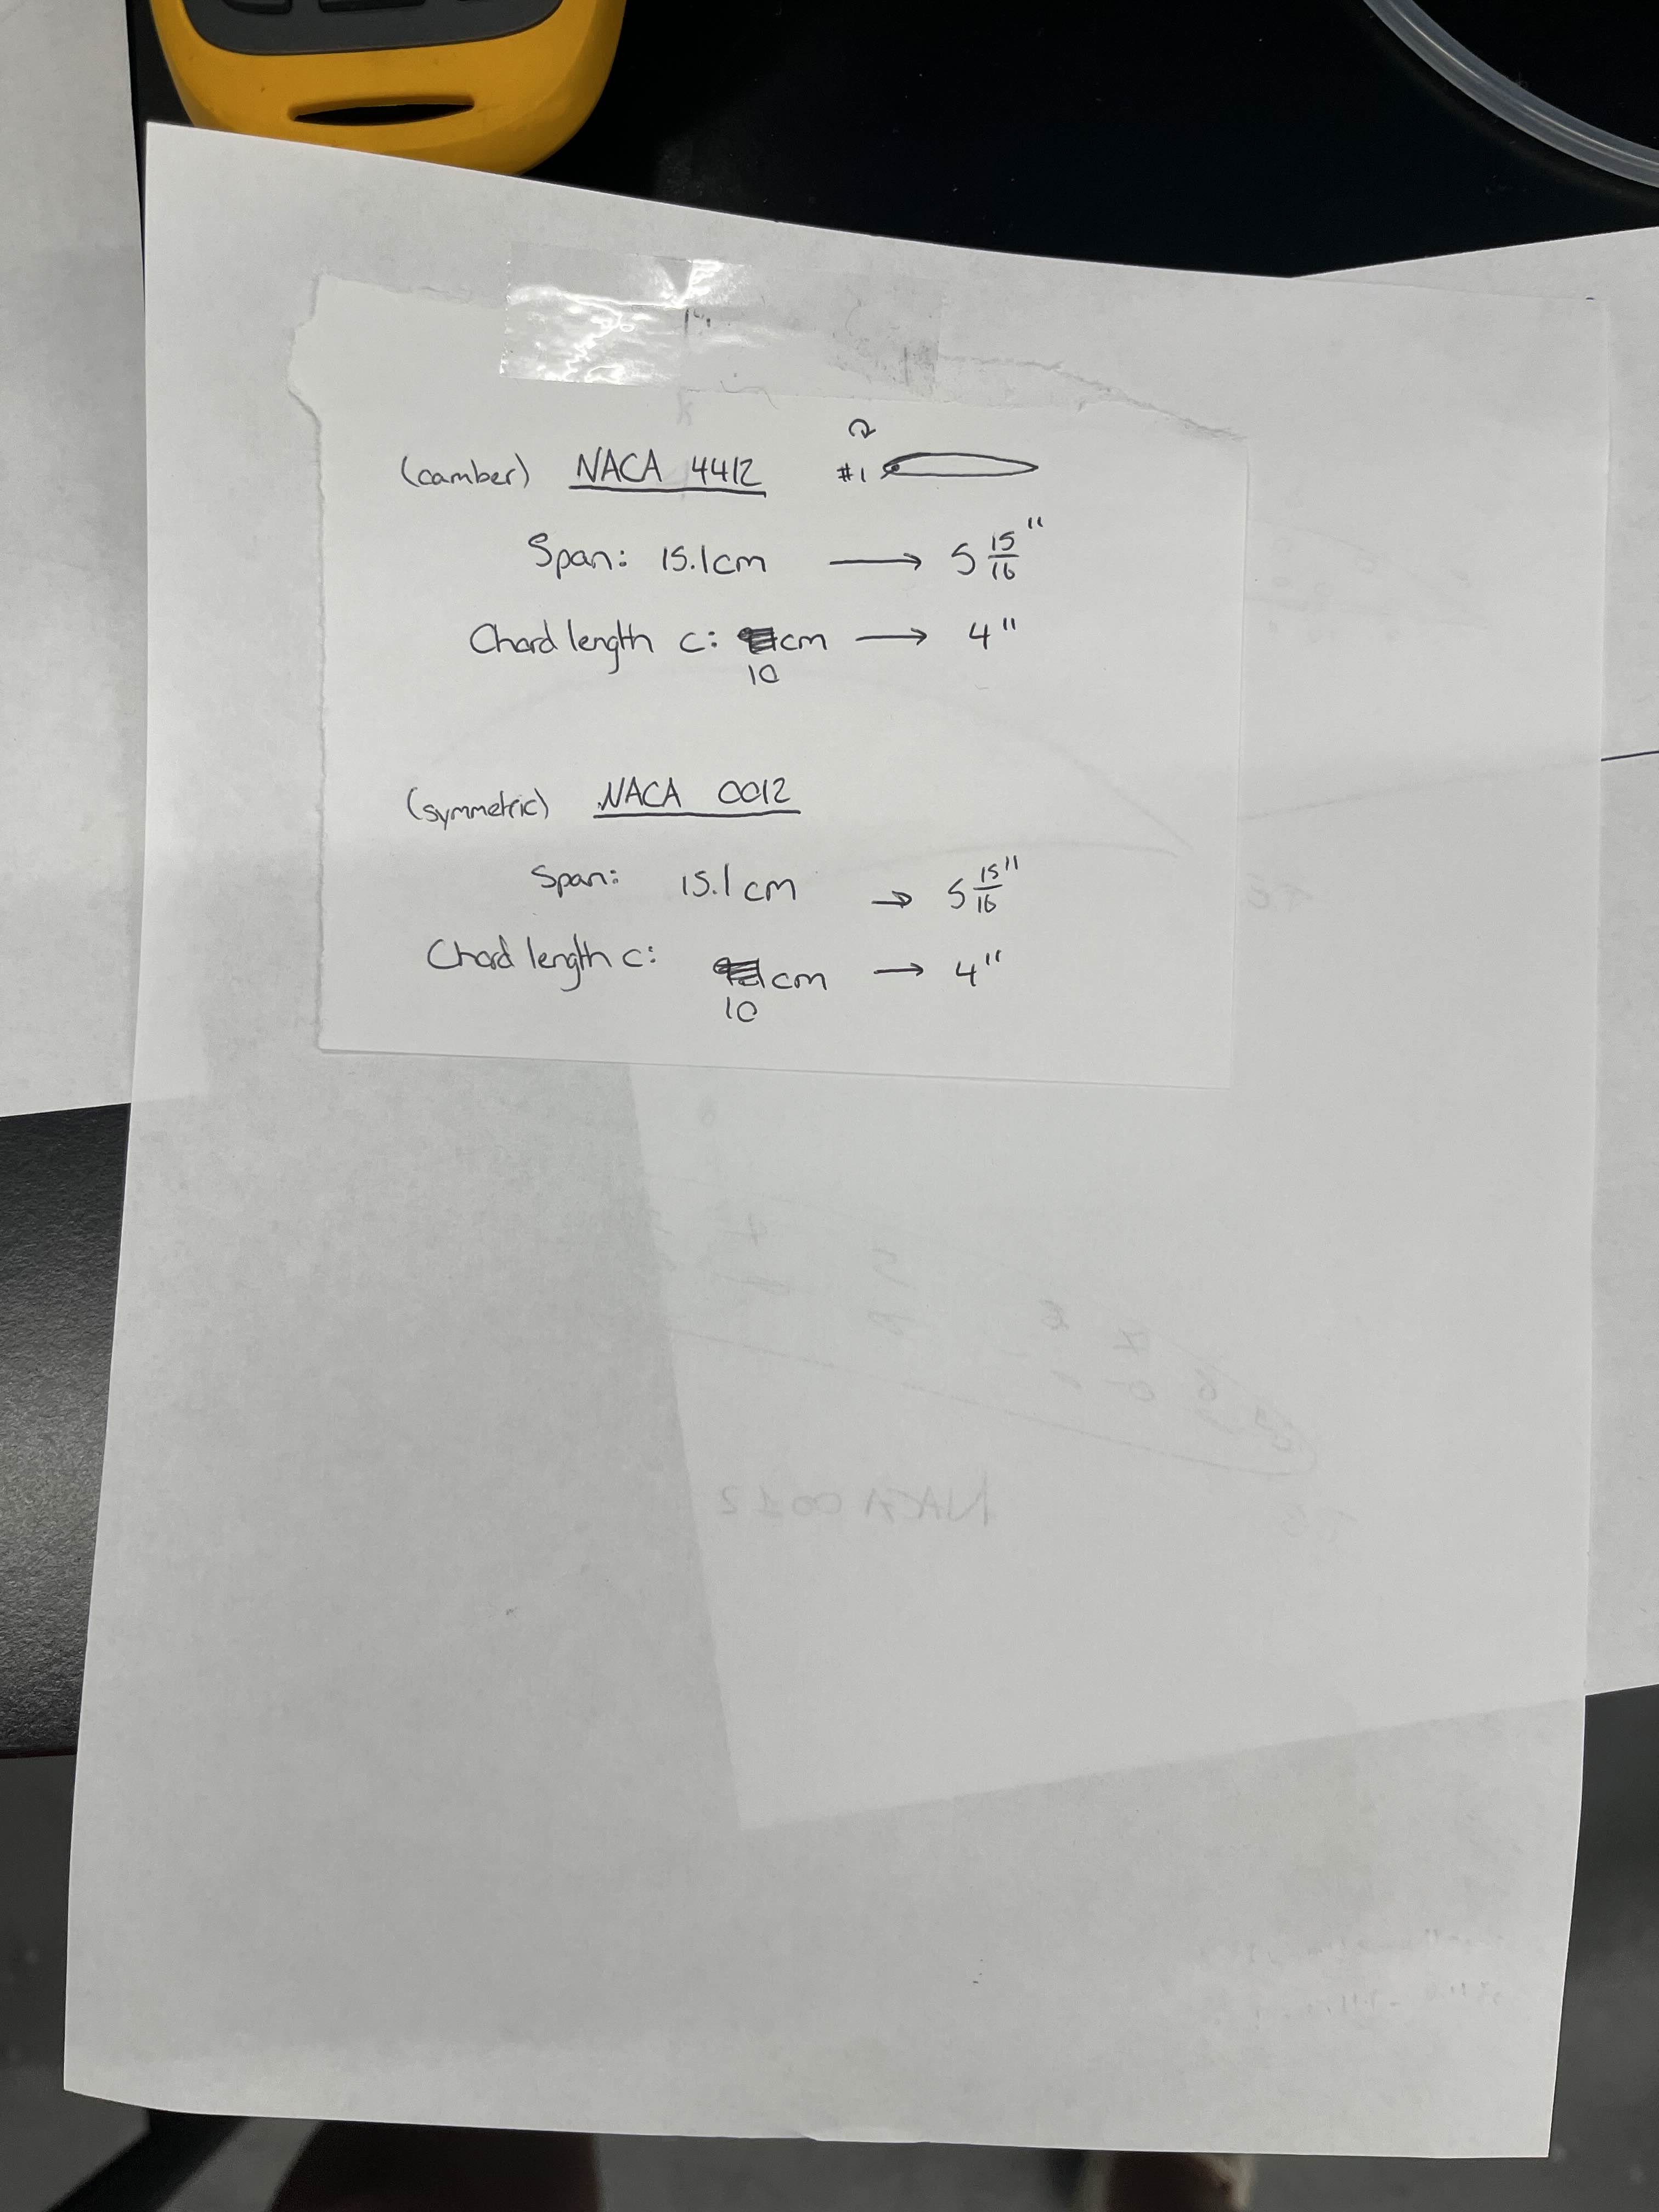 (camber) NACA 4412 #1
Span: 15.1cm → 5 15/16"
Chord length c: cm → 4"
10
(symmetric) NACA 0012
Span: 15.1 cm → 5 15/16"
Chord length c: cm → 4"
10
NACA 0012